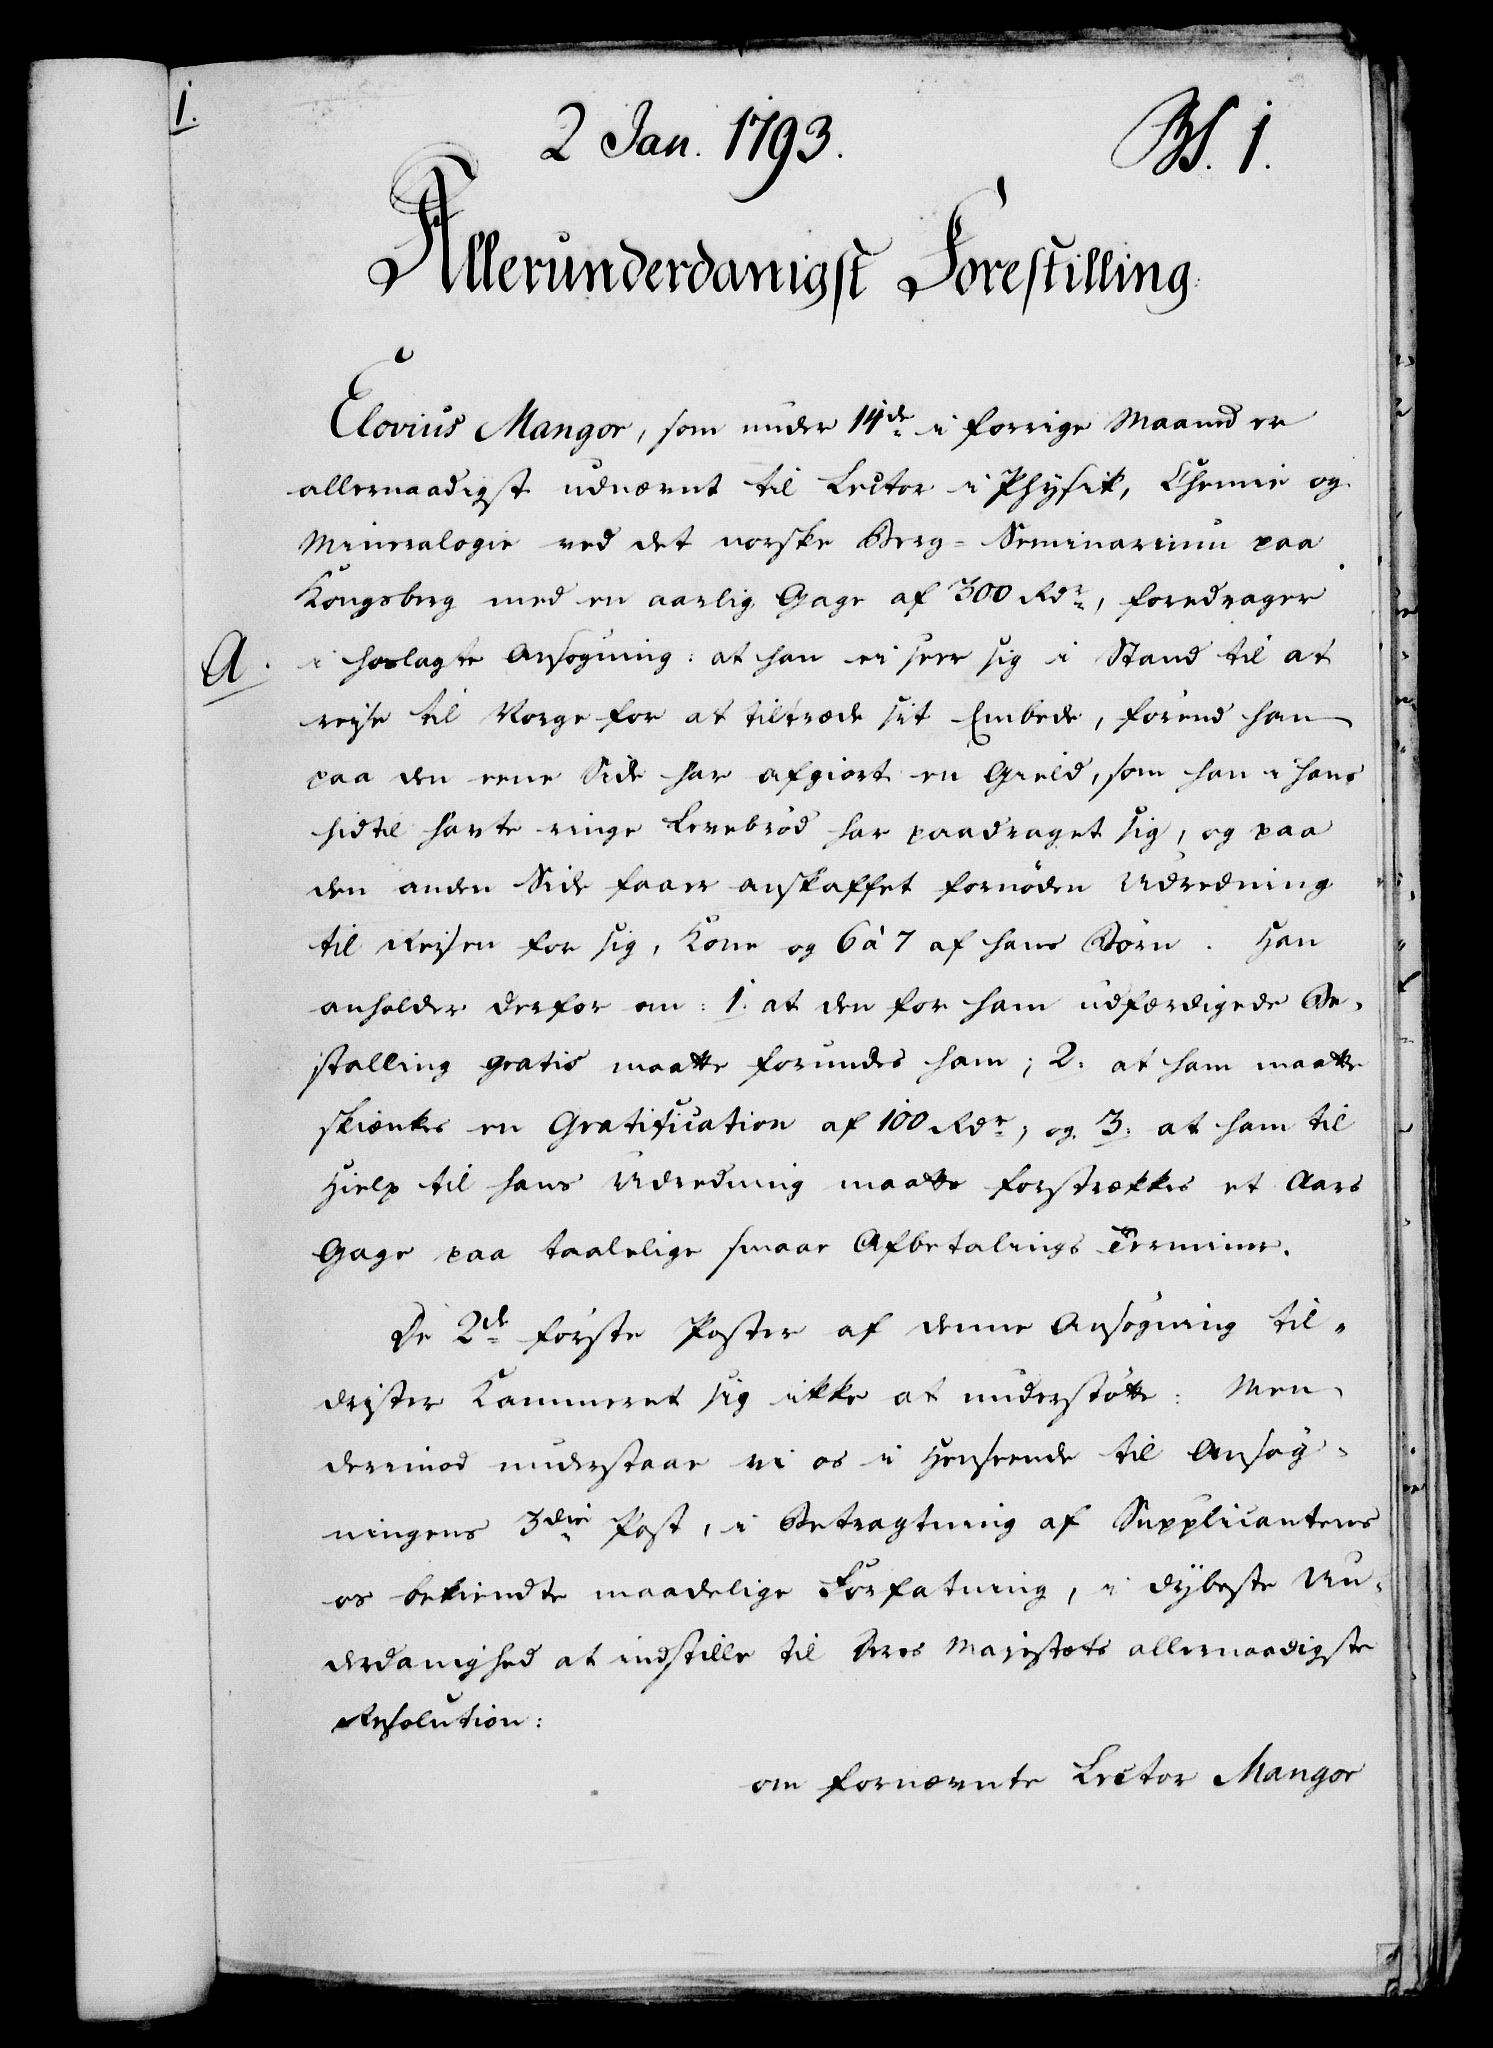 1.
2 Jan. 1793.
Bs. 1.
Allerunderdanigst Forestilling.
Elovius Mangor, som under 14de i forrige Maaned er
allernaadigst udnævnt til Lector i Physik, Chemie og
Mineralogie ved det norske Berg-Seminarium paa
Kongsberg med en aarlig Gage af 300 Rdr, foredrager
A.
i hoslagte Ansøgning: at han ei seer sig i Stand til at
rejse til Norge for at tiltræde sit Embede, forend han
paa den eene Side har afgiort en Gield, som han i hans
hidtil havte ringe Levebrød har paadraget sig, og paa
den anden Side faaer anskaffet fornøden Udredning
til Rejsen for sig, Kone og 6 à 7 af hans Børn. Han
anholder derfor om: 1. at den for ham udfærdigede Be-
stalling gratis maatte forundes ham; 2. at ham maatte
skiænkes en Gratification af 100 Rdr; og 3. at ham til
Hielp til hans Udredning maatte forstrækkes et Aars
Gage paa taalelige smaae Afbetalings Terminer.
De 2de første Poster af denne Ansøgning til-
drister Kammeret sig ikke at understøtte: Men
derimod understaae vi os i Henseende til Ansøg-
ningens 3die Post, i Betragtning af Supplicantens
os bekiendte maadelige Forfatning, i dybeste Un-
derdanighed at indstille til Deres Majestæts allernaadigste
Resolution:
om fornævnte Lector Mangor